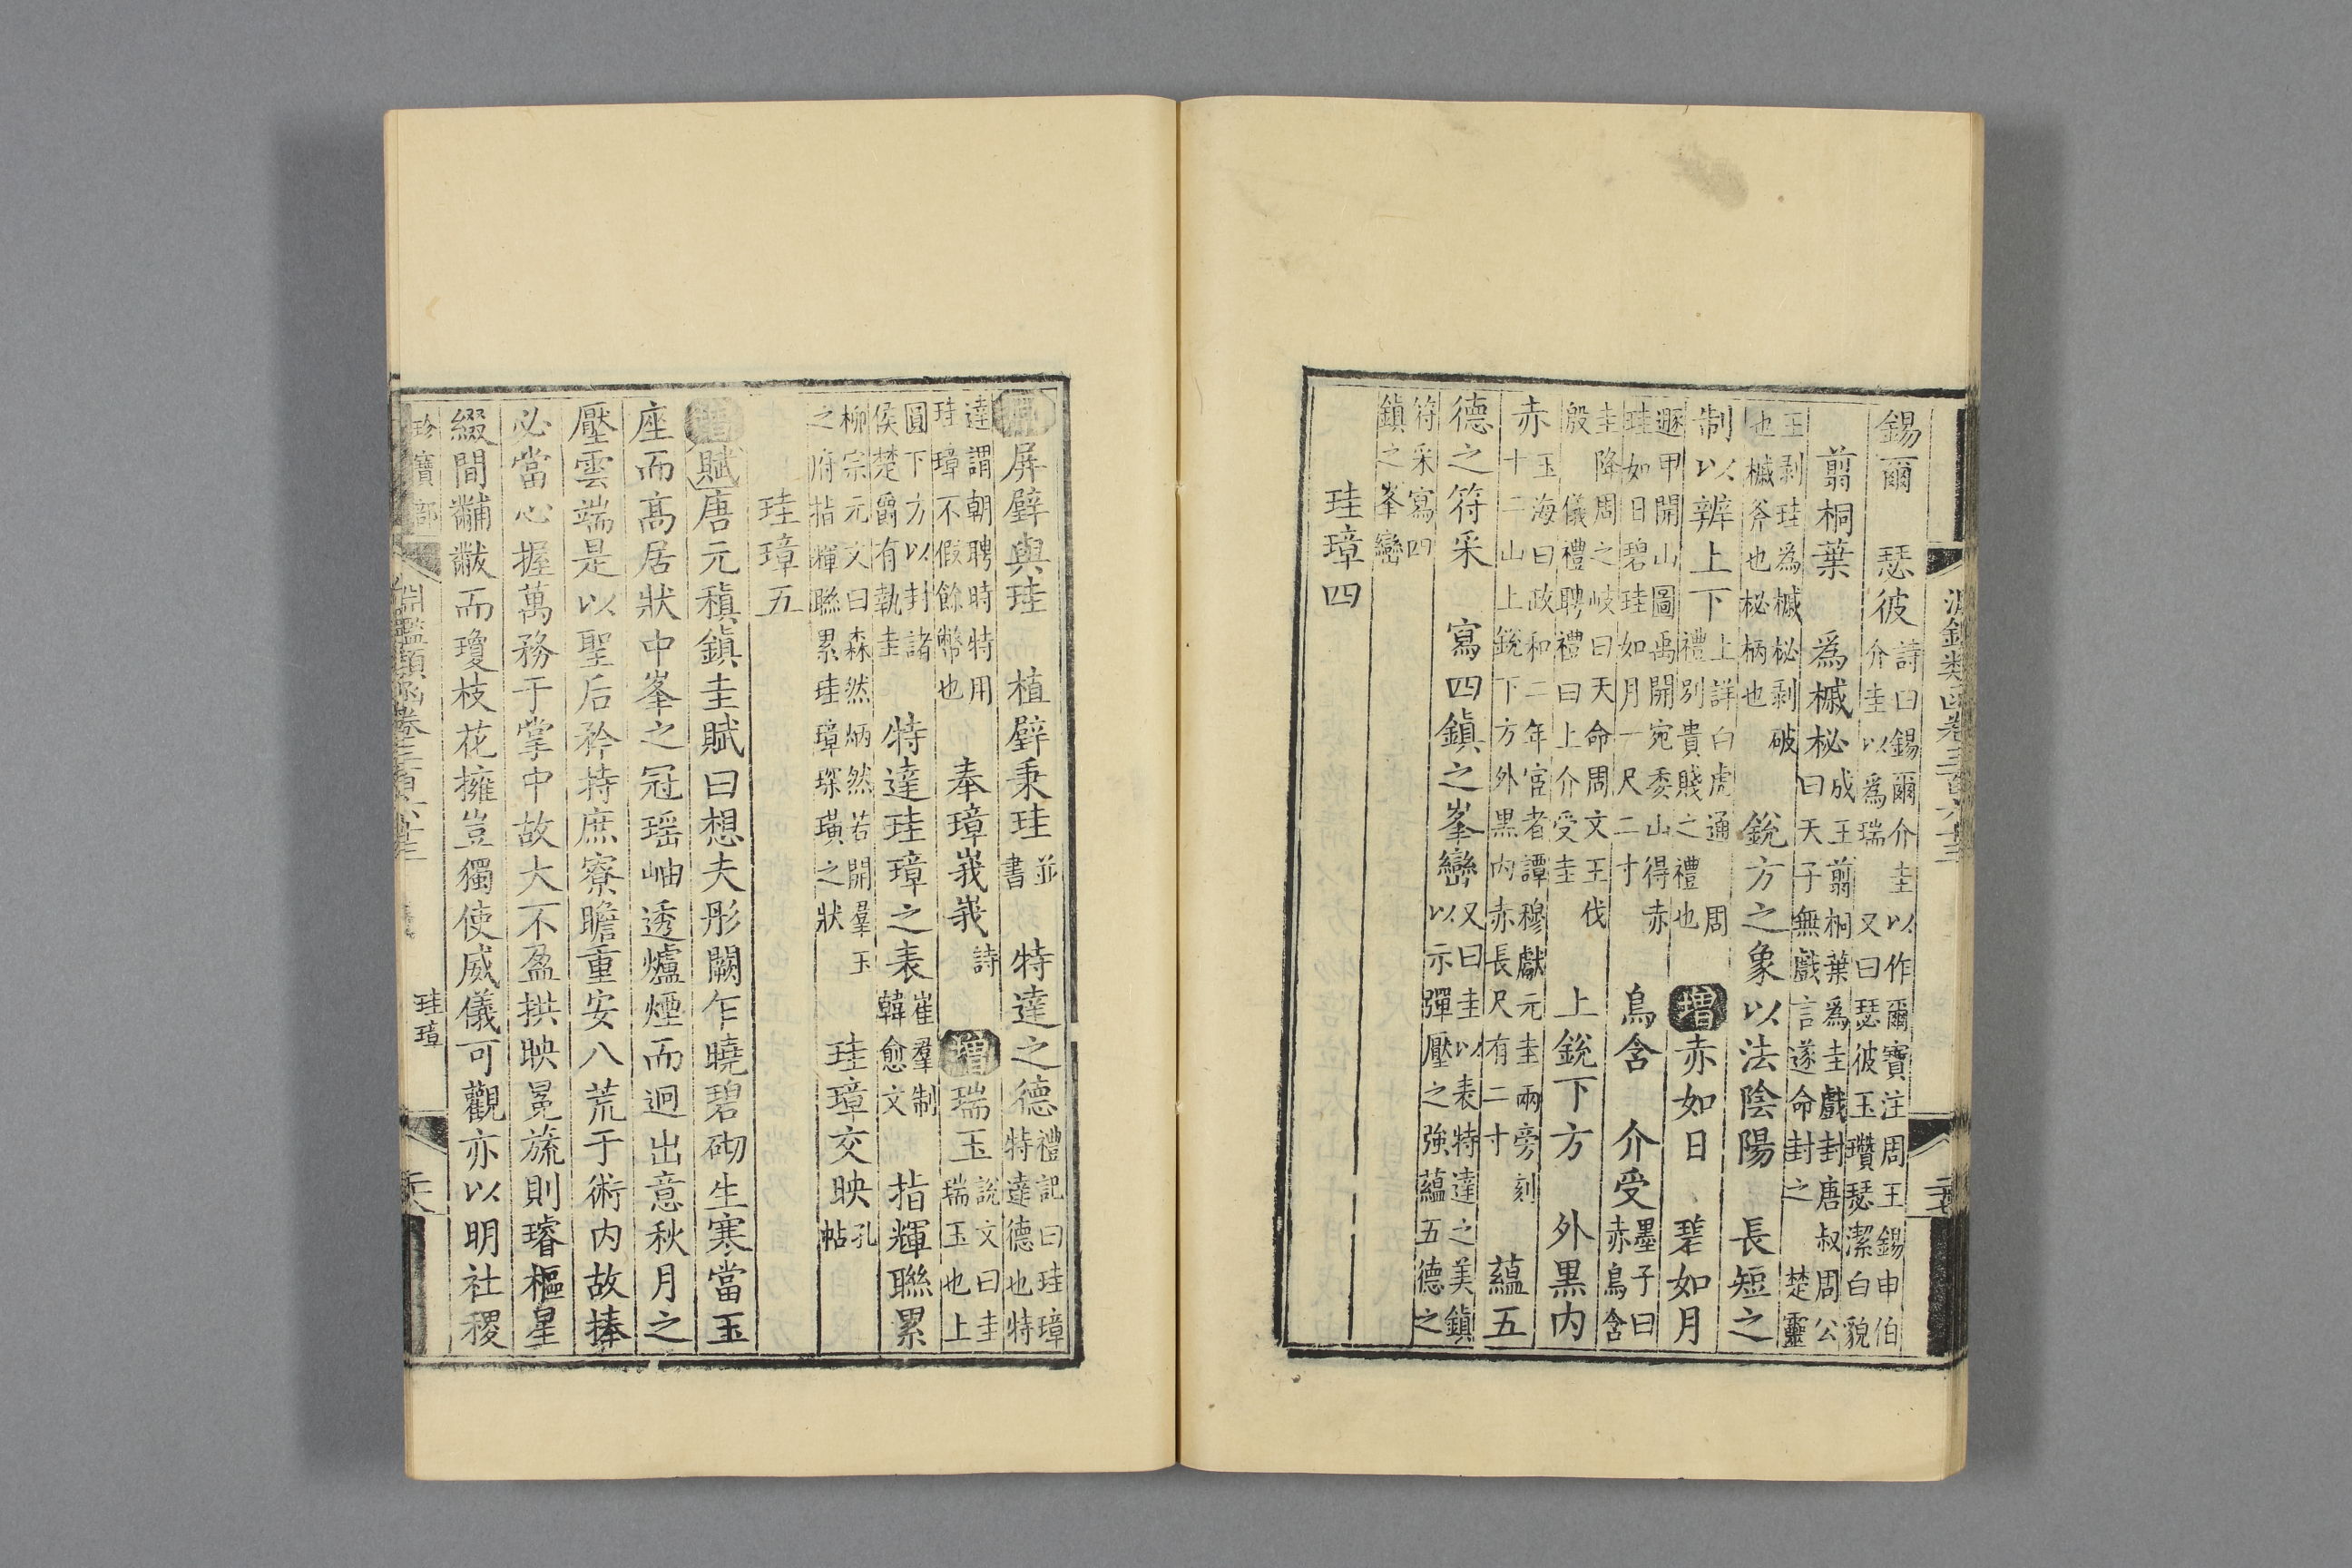 淵鑑類函卷三百六十三
錫爾　瑟彼詩曰錫爾介圭以作爾寶注周王錫申伯介圭以爲瑞　又曰瑟彼玉瓚瑟潔白貌
翦桐葉　爲鏚柲成王翦桐葉爲圭戲封唐叔周公曰天子無戲言遂命封之　楚靈
王剥珪爲鏚柲剥破也鏚斧也柲柄也　銳方之象以法陰陽　長短之
制以辨上下上詳白虎通　周禮别貴賤之禮也　增赤如日　碧如月
遯甲開山圖禹開宛委山得赤珪如日碧珪如月一尺二寸　烏含　介受墨子曰赤烏含
圭降周之岐曰天命周文王伐殷　儀禮聘禮曰上介受圭　上銳下方　外黑内
赤玉海曰政和二年宦者譚穆獻元圭兩旁刻十二山上銳下方外黑内赤長尺有二寸　蘊五
德之符采　寫四鎮之峯巒又曰圭以表特達之美鎮以示彈壓之強蘊五德之
符采寫四鎮之峯巒
珪璋四
屏璧與珪　植璧秉珪並書　特達之德禮記曰珪璋特達德也特
達謂朝聘時特用珪璋不假餘幣也　奉璋峩峩詩　增瑞玉說文曰圭瑞玉也上
圓下方以封諸侯楚爵有執圭　特達珪璋之表崔羣制韓愈文　指輝聯累
柳宗元文曰森然炳然若開羣玉之府指輝聯累珪璋琛璜之狀　珪璋交映孔帖
珪璋五
增賦唐元稹鎮圭賦曰想夫彤闕乍曉碧砌生寒當玉
座而高居狀中峯之冠瑶岫透爐煙而迥出意秋月之
壓雲端是以聖后矜持庶寮瞻重安八荒于術内故捧
必當心握萬務于掌中故大不盈拱映冕旒則璿樞星
綴間黼黻而瓊枝花擁豈獨使威儀可觀亦以明社稷
珍寶部　淵鑑類函卷三百六十三　珪璋